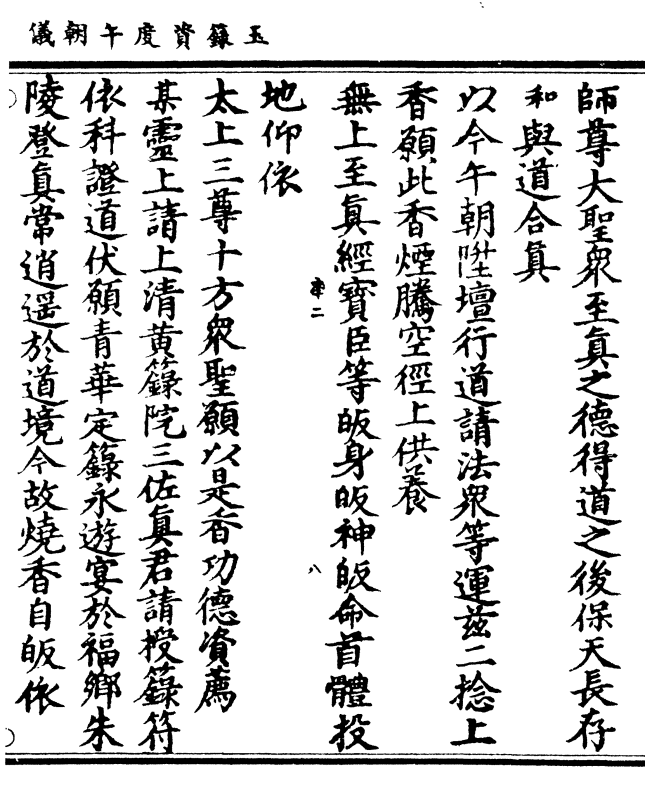 玉籙資度午朝儀
師尊大聖衆至眞之德得道之後保天長存
和與道合眞
以今午朝陞壇行道請法衆等運茲二捻上
香願此香煙騰空徑上供養
無上至眞經寶臣等皈身皈神皈命首體投
地仰依
太上三尊十方衆聖願以是香功德資薦
某靈上請上清黃籙院三佐眞君請授籙符
依科證道伏願青華定籙永遊宴於福鄉朱
陵登眞常逍遥於道境今故燒香自皈依
二
八